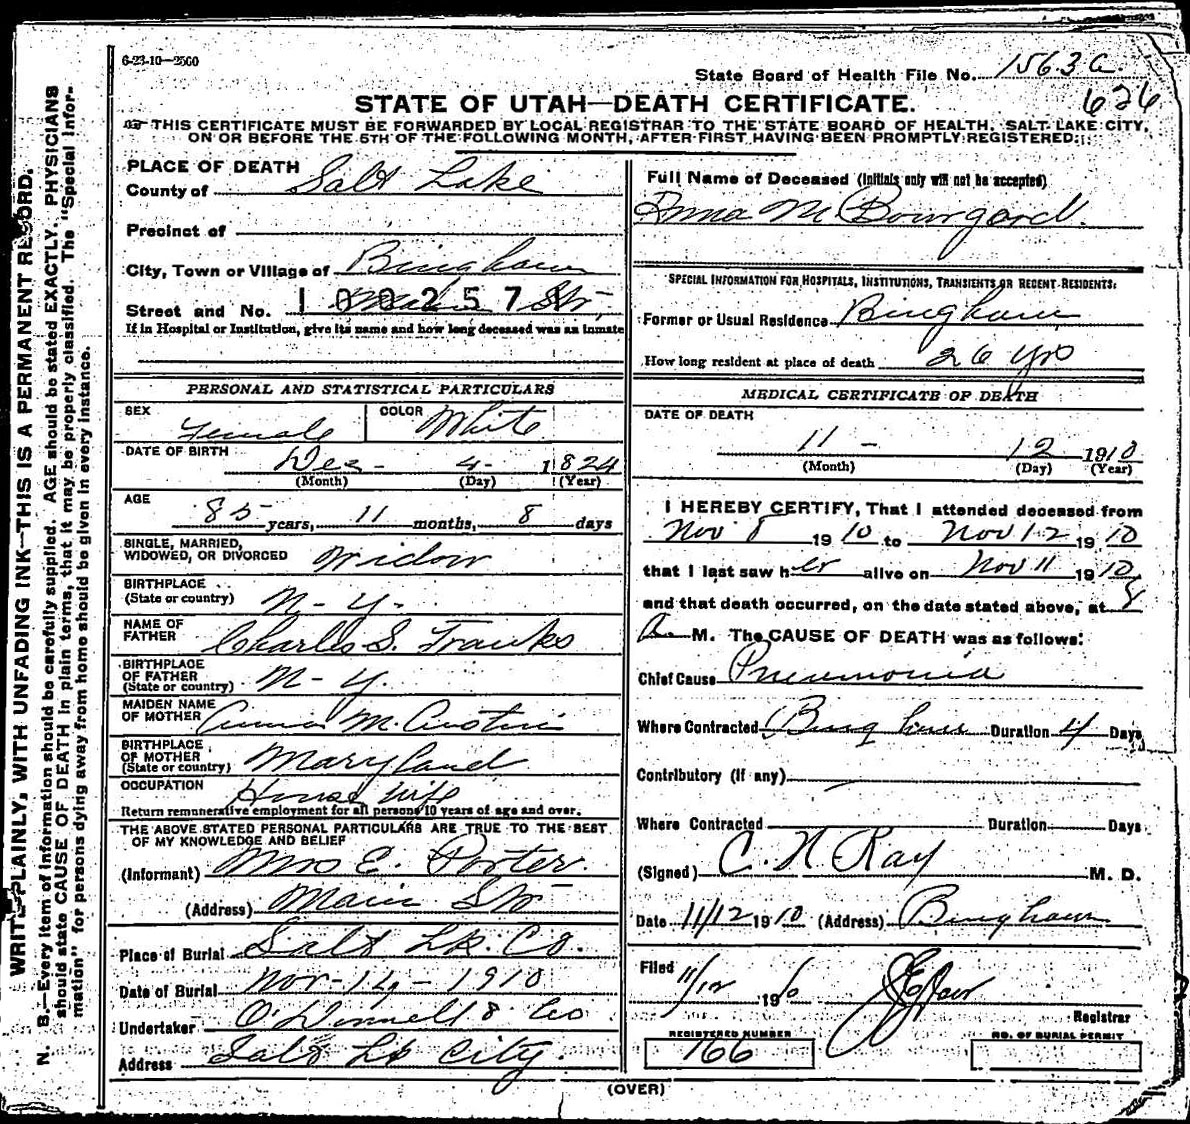 WRITE PLAINLY, WITH UNFADING INK—THIS IS A PERMANENT RECORD.
N. B.—Every item of information should be carefully supplied. AGE should be stated EXACTLY. PHYSICIANS
should state CAUSE OF DEATH in plain terms, that it may be properly classified. The "Special Infor-
mation" for persons dying away from home should be given in every instance.
6-23-10—2500
State Board of Health File No. 1563 a
626
STATE OF UTAH—DEATH CERTIFICATE.
THIS CERTIFICATE MUST BE FORWARDED BY LOCAL REGISTRAR TO THE STATE BOARD OF HEALTH, SALT LAKE CITY,
ON OR BEFORE THE 5TH OF THE FOLLOWING MONTH, AFTER FIRST HAVING BEEN PROMPTLY REGISTERED.
PLACE OF DEATH
County of Salt Lake
Precinct of
City, Town or Village of Bingham
Street and No. Main Str
1 0 0 2 5 7 8
If in Hospital or Institution, give its name and how long deceased was an inmate
PERSONAL AND STATISTICAL PARTICULARS
SEX Female COLOR White
DATE OF BIRTH Dec - 4 - 1824
(Month) (Day) (Year)
AGE
85 years, 11 months, 8 days
SINGLE, MARRIED,
WIDOWED, OR DIVORCED Widow
BIRTHPLACE
(State or country) N - Y.
NAME OF
FATHER Charles S. Franks
BIRTHPLACE
OF FATHER
(State or country) N - Y.
MAIDEN NAME
OF MOTHER Anna M. Austin
BIRTHPLACE
OF MOTHER
(State or country) Maryland
OCCUPATION House wife
Return remunerative employment for all persons 10 years of age and over.
THE ABOVE STATED PERSONAL PARTICULARS ARE TRUE TO THE BEST
OF MY KNOWLEDGE AND BELIEF
(Informant) Mrs E. Porter
(Address) Main Str
Place of Burial Salt Lk. Co.
Date of Burial Nov - 14 - 1910
Undertaker O'Donnell & Co
Address Salt Lk City
Full Name of Deceased (Initials only will not be accepted)
Anna M Bourgard.
SPECIAL INFORMATION FOR HOSPITALS, INSTITUTIONS, TRANSIENTS OR RECENT RESIDENTS:
Former or Usual Residence Bingham
How long resident at place of death 26 yrs
MEDICAL CERTIFICATE OF DEATH
DATE OF DEATH
11 - 12 1910
(Month) (Day) (Year)
I HEREBY CERTIFY, That I attended deceased from
Nov 8 1910 to Nov 12 1910
that I last saw her alive on Nov 11 1910
and that death occurred, on the date stated above, at 8
A. M. The CAUSE OF DEATH was as follows:
Chief Cause Pneumonia
Where Contracted Bingham Duration 4 Days
Contributory (if any)
Where Contracted Duration Days
(Signed) C. N Ray M. D.
Date 11/12 1910 (Address) Bingham
Filed 11/12 1910
Registrar
REGISTERED NUMBER
166
NO. OF BURIAL PERMIT
(OVER)